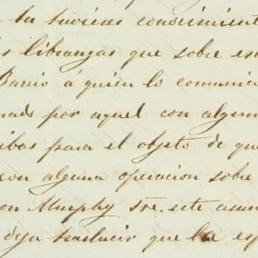 tu tuvieses conocimient
libranzas que sobre es
Barrio á quien lo comunic
por aquel con algun
ribas para el objeto de qu
con alguna operacion sobre
on Murphy sre. este asun
deja traslucir que la esp